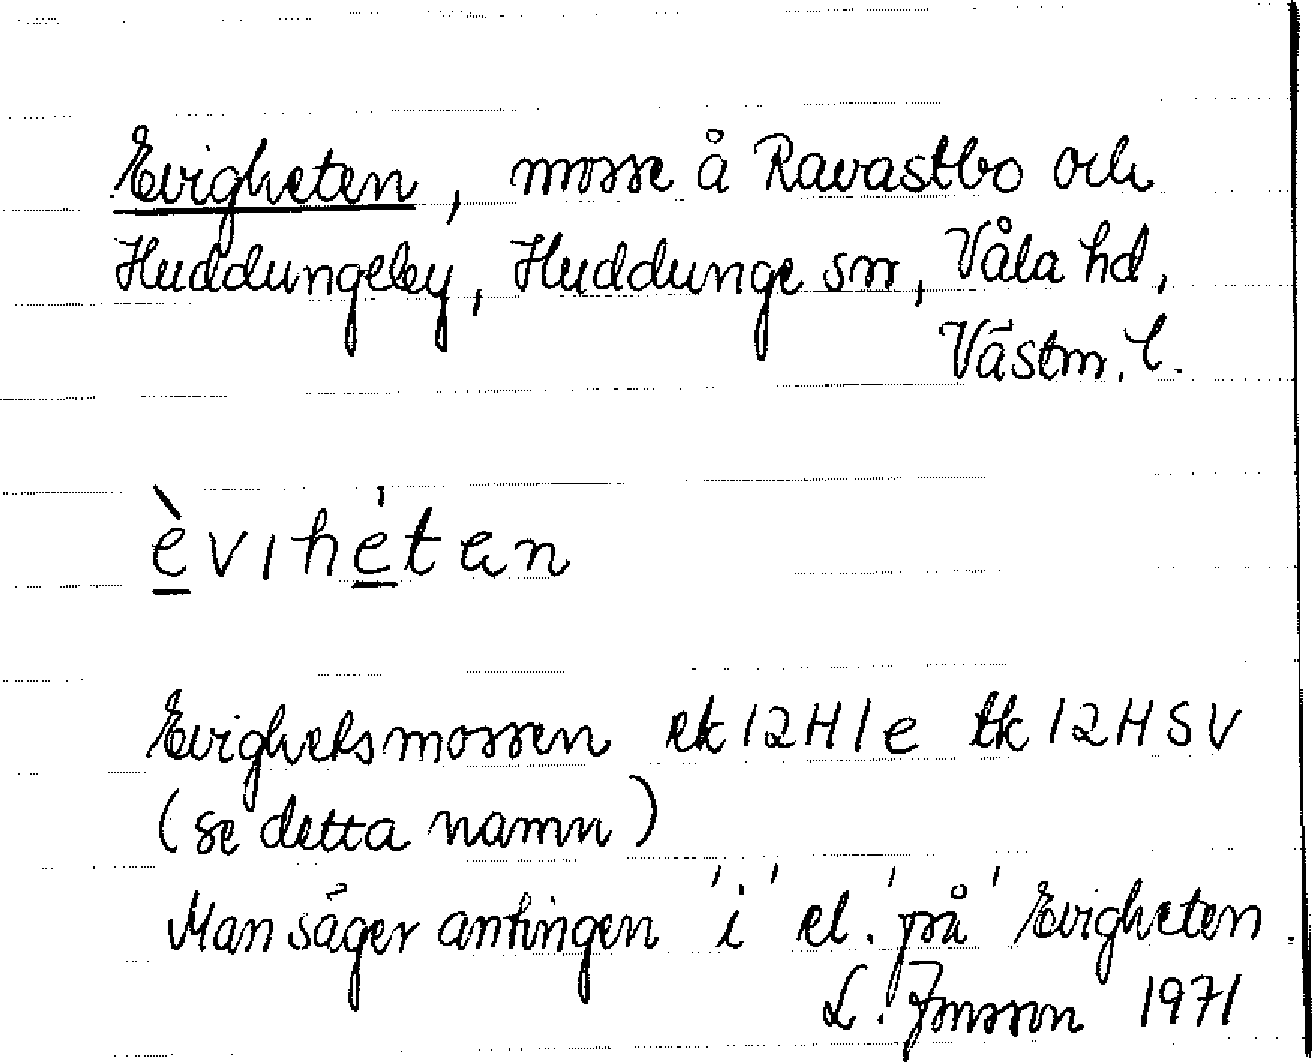 Evigheten, mosse å Ravastbo och
Huddungeby, Huddunge sn, Våla hd,
Västm. l.
èvihéten
Evighetsmossen ek 12H1e tk 12HSV
(se detta namn)
Man säger antingen 'i' el. 'på' Evigheten.
L. Jonsson 1971